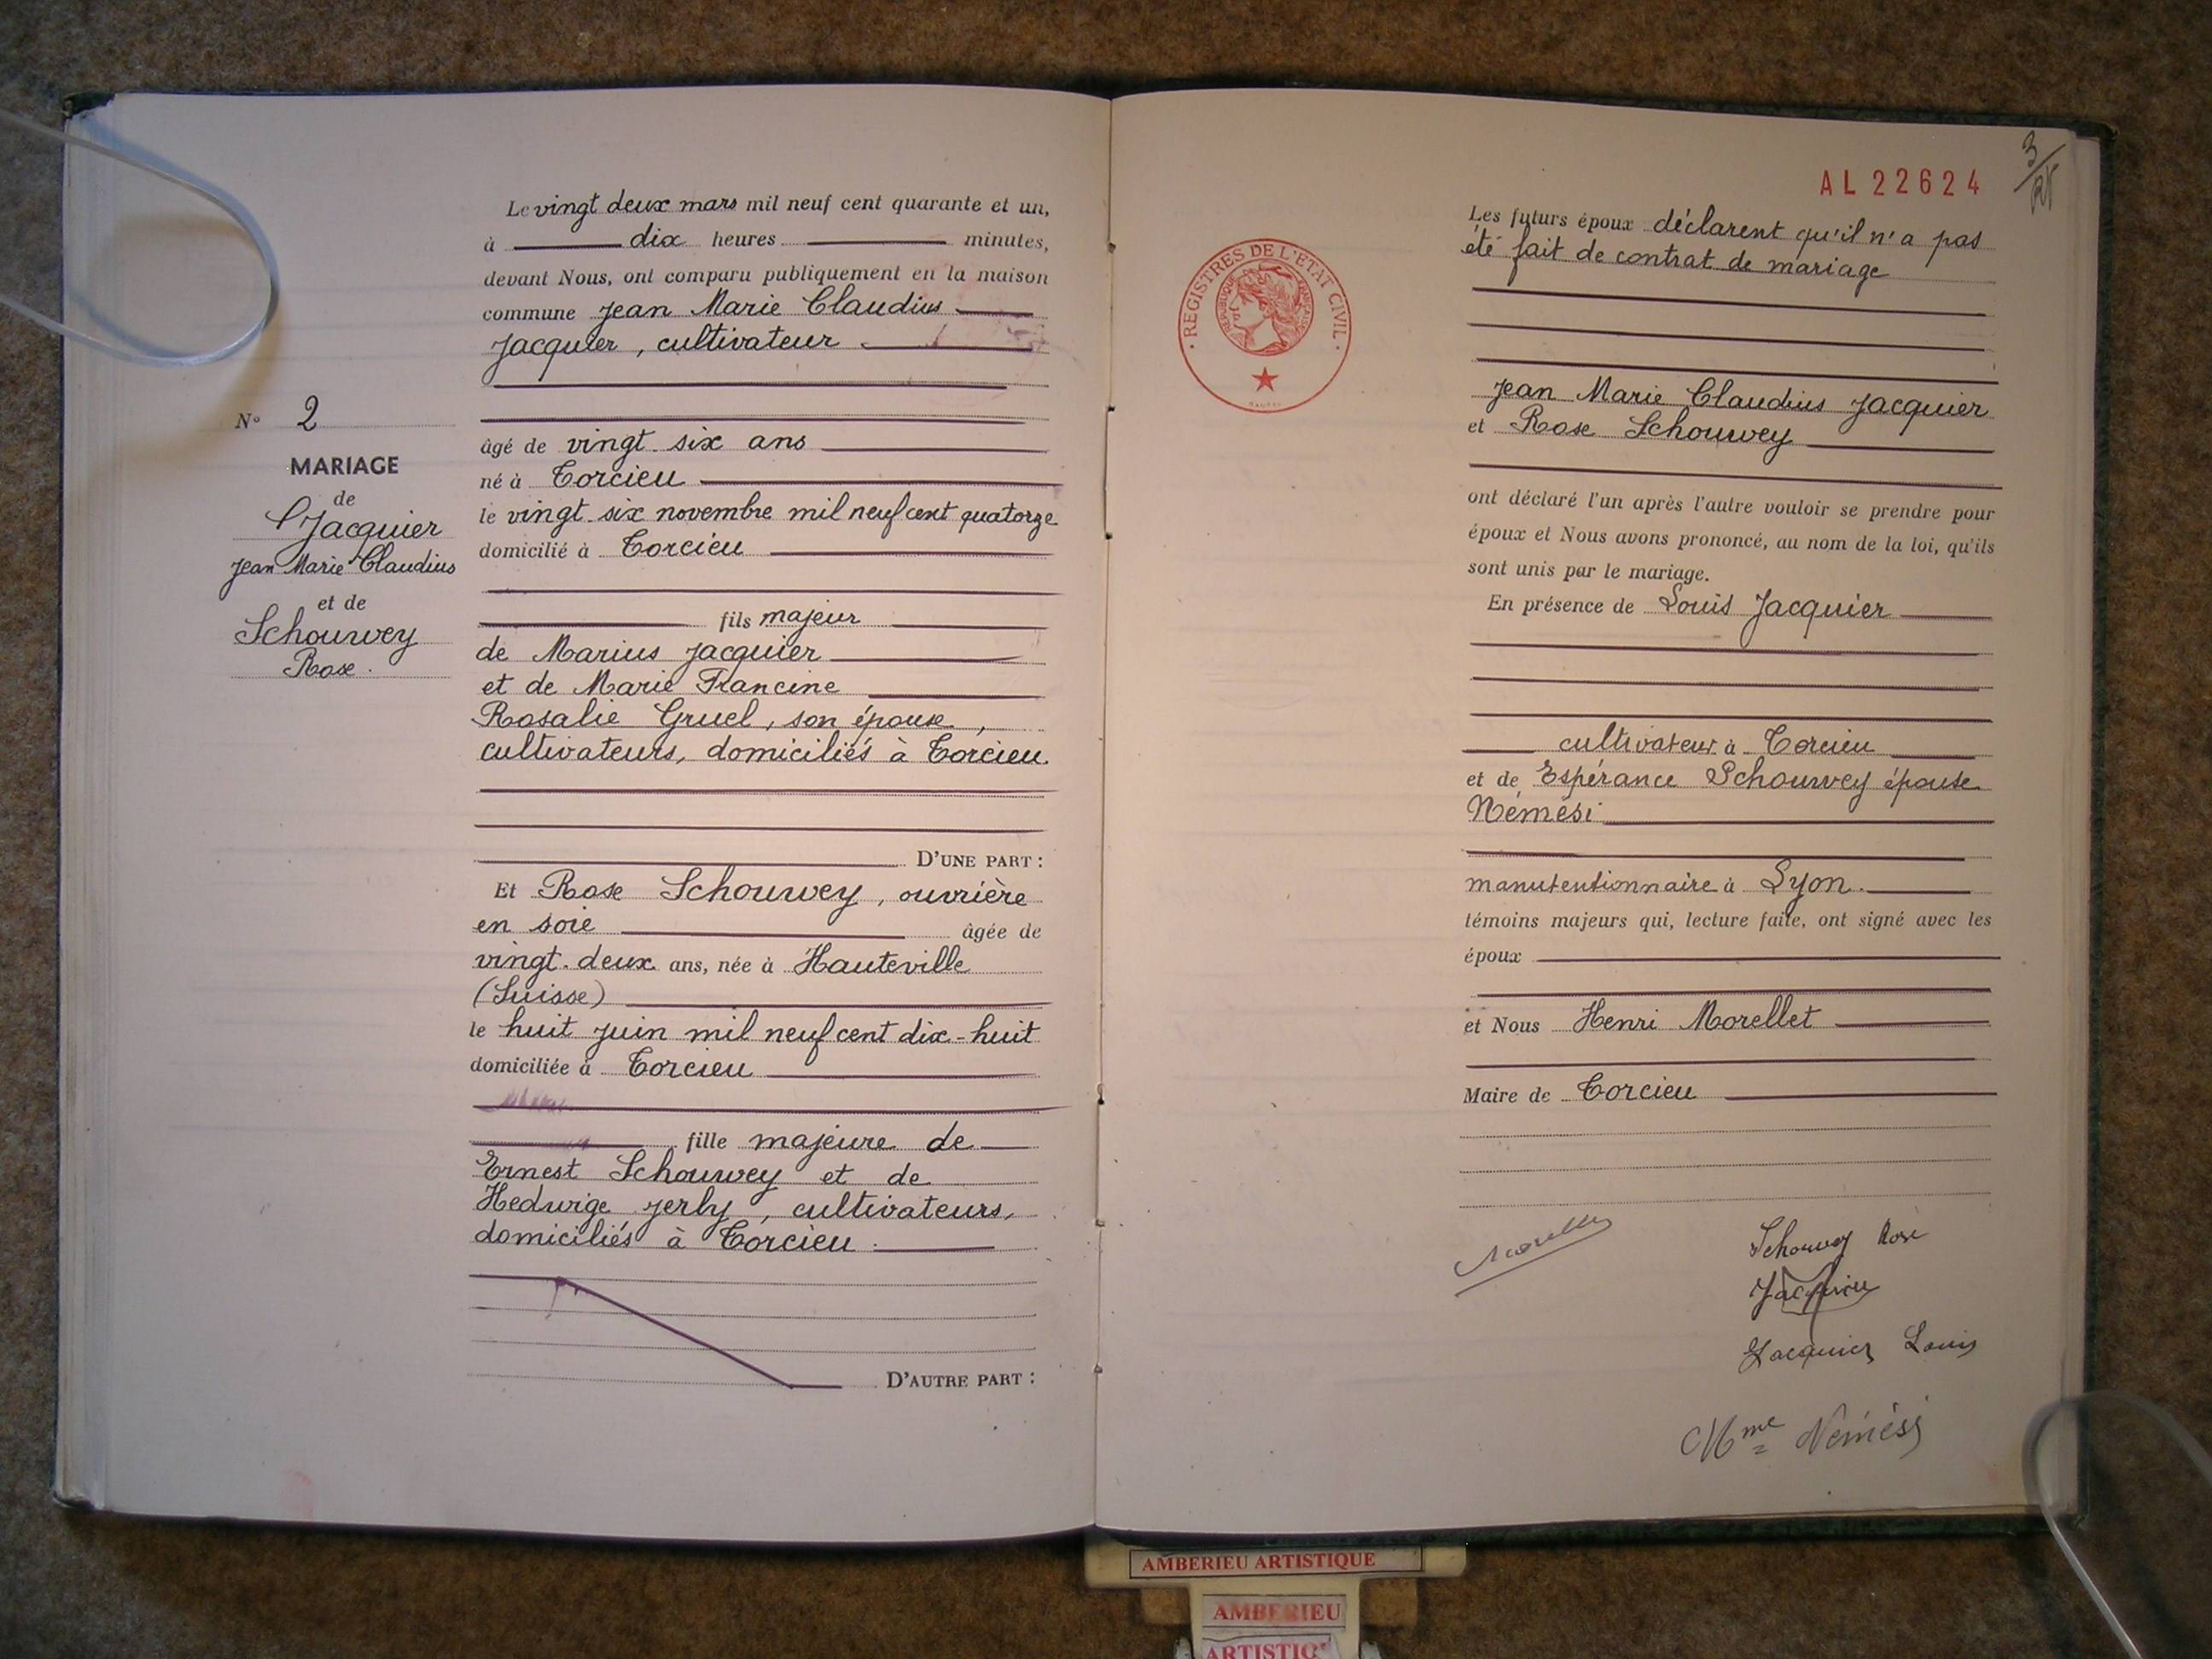 Le vingt deux mars mil neuf cent quarante et un,
à dix heures minutes,
devant Nous, ont comparu publiquement en la maison
commune Jean Marie Claudius
Jacquier, cultivateur
âgé de vingt-six ans
né à Torcieu
le vingt-six novembre mil neuf cent quatorze
domicilié à Torcieu
fils majeur
de Marius Jacquier
et de Marie Francine
Rosalie Gruel, son épouse,
cultivateurs, domiciliés à Torcieu.
D'UNE PART :
Et Rose Schouwey, ouvrière
en soie âgée de
vingt-deux ans, née à Hauteville
(Suisse)
le huit juin mil neuf cent dix-huit
domiciliée à Torcieu
fille majeure de
Ernest Schouwey et de
Hedwige Jerly, cultivateurs,
domiciliés à Torcieu.
D'AUTRE PART :
N° 2
MARIAGE
de
Jacquier
Jean Marie Claudius
et de
Schouwey
Rose.
REGISTRES DE L'ETAT CIVIL
REPUBLIQUE FRANÇAISE
AL 22624
3
Les futurs époux déclarent qu'il n'a pas
été fait de contrat de mariage
Jean Marie Claudius Jacquier
et Rose Schouwey
ont déclaré l'un après l'autre vouloir se prendre pour
époux et Nous avons prononcé, au nom de la loi, qu'ils
sont unis par le mariage.
En présence de Louis Jacquier
cultivateur à Torcieu
et de Espérance Schouwey épouse
Némési
manutentionnaire à Lyon.
témoins majeurs qui, lecture faite, ont signé avec les
époux
et Nous Henri Morellet
Maire de Torcieu
Morellet
Schouwey Rose
Jacquier
Jacquier Louis
Mme Némési
AMBERIEU ARTISTIQUE
AMBERIEU
ARTISTIQ